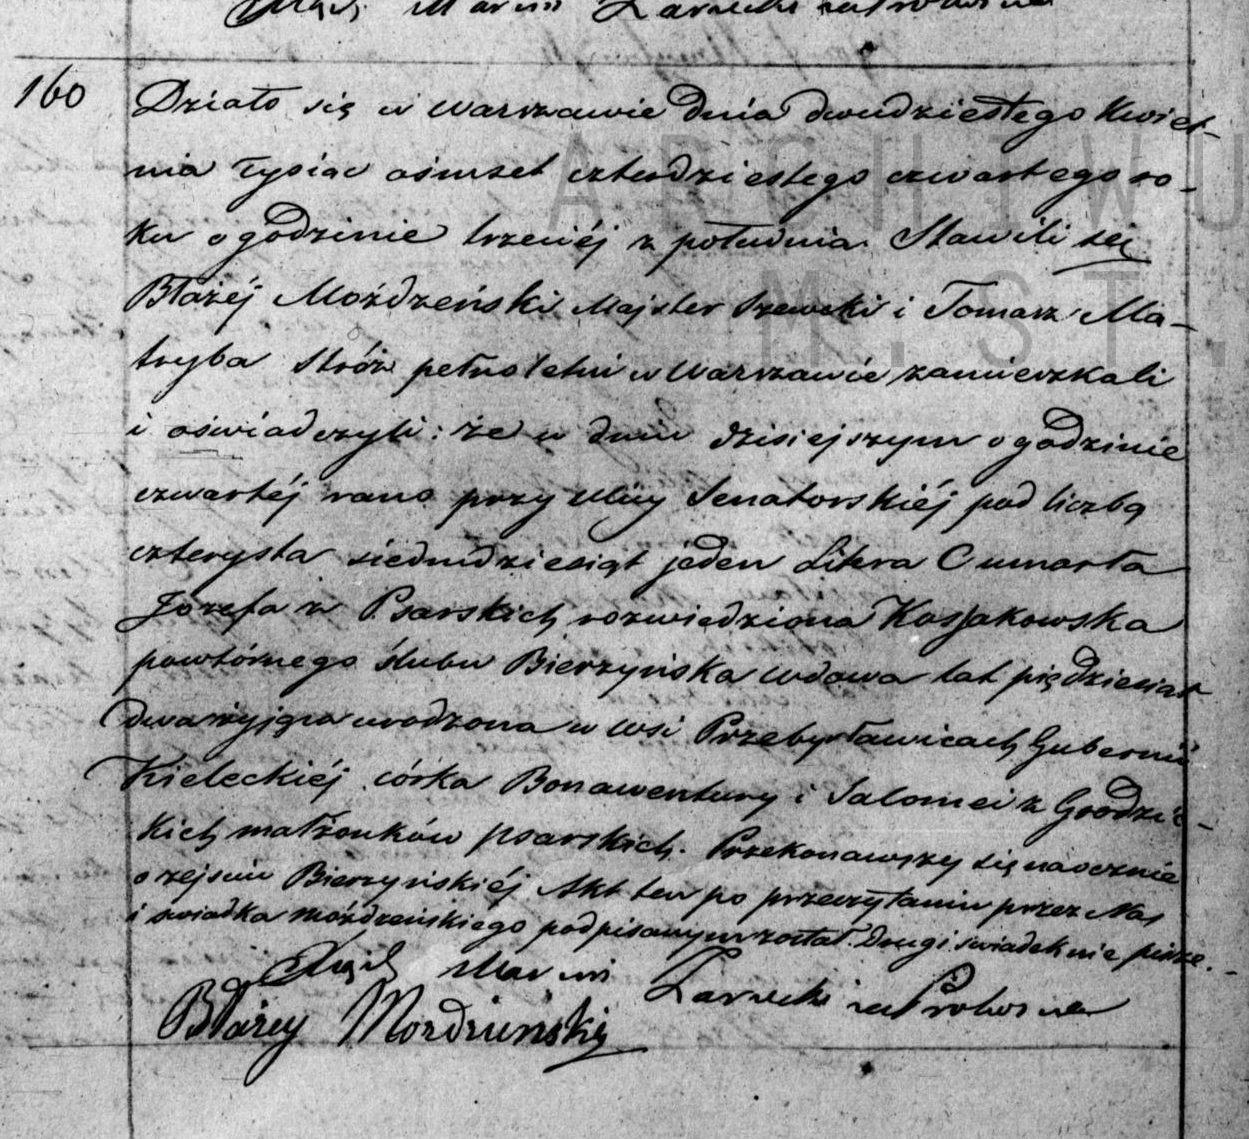 160
Działo się w Warszawie Dnia dwudziestego Kwiet-
nia tysiąc ośmset czterdziestego czwartego ro-
ku o godzinie trzeciéj z południa. Stawili się
Błażéj Moździeński Majster Szewcki i Tomasz Ma-
tryba Stróż pełnoletni w Warszawie zamieszkali
i oświadczyli: że w dniu dzisiejszym o godzinie
czwartéj rano przy ulicy Senatorskiéj pod liczbą
czterysta siedmdziesiąt jeden Litera C umarła
Józefa z Psarskich rozwiedziona Kossakowska
powtórnego ślubu Bierzyńska wdowa lat pięćdziesiąt
dwa żyjąca urodzona w wsi Przebysławicach Gubernii
Kieleckiéj córka Bonawentury i Salomei z Grodzic-
kich małżonków Psarskich. Przekonawszy się naocznie
o zejściu Bierzyńskiéj Akt ten po przeczytaniu przez Nas
i świadka Moździeńskiego podpisanym został. Drugi świadek nie pisze.
Marcin
Błażey Mozdzinski
ARCHIWU
M.ST.